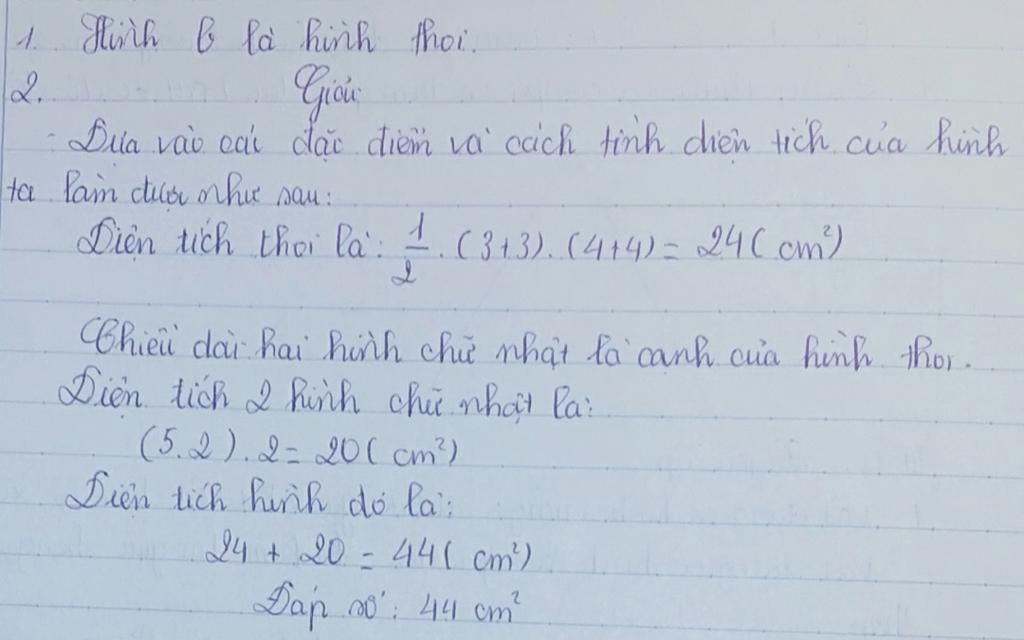 1. Hình b là hình thoi.
2. Giải
- Dựa vào các đặc điểm và cách tính diện tích của hình
ta làm được như sau:
Diện tích thoi là: 1/2 . (3+3) . (4+4) = 24 ( cm²)
Chiều dài hai hình chữ nhật là cạnh của hình thoi.
Diện tích 2 hình chữ nhật là:
(5.2) . 2 = 20 ( cm²)
Diện tích hình đó là:
24 + 20 = 44 ( cm²)
Đáp số: 44 cm²